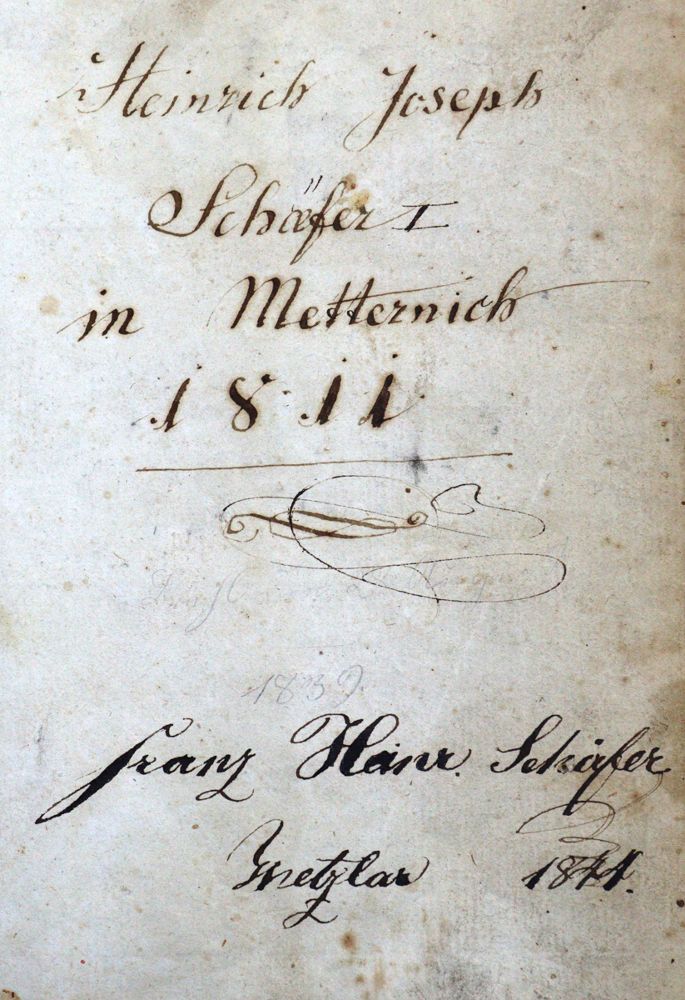 Heinrich Joseph
Schæfer I
in Metternich
1811
1839.
Franz Heinr. Schäfer
Wetzlar 1844.